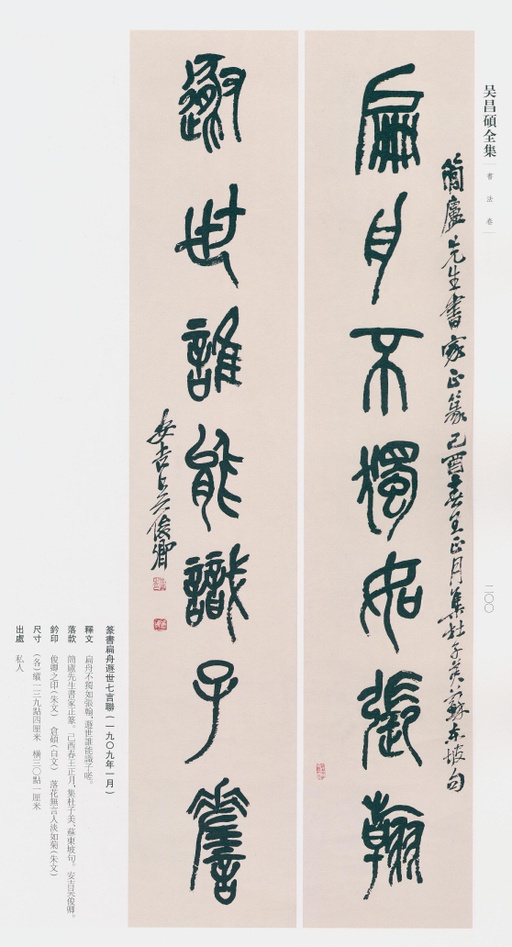 吴昌碩全集
書法卷
二〇〇
簡廬先生書家正篆己酉春王正月集杜子美蘇東坡句
扁舟不獨如張翰
遯世誰能識子嗟
安吉吳俊卿
篆書扁舟遯世七言聯（一九〇九年一月）
釋文 扁舟不獨如張翰，遯世誰能識子嗟。
落款 簡廬先生書家正篆。己酉春王正月，集杜子美、蘇東坡句。安吉吳俊卿。
鈐印 俊卿之印（朱文） 倉碩（白文） 落花無言人淡如菊（朱文）
尺寸 （各）縱一三九點四厘米 橫三〇點一厘米
出處 私人